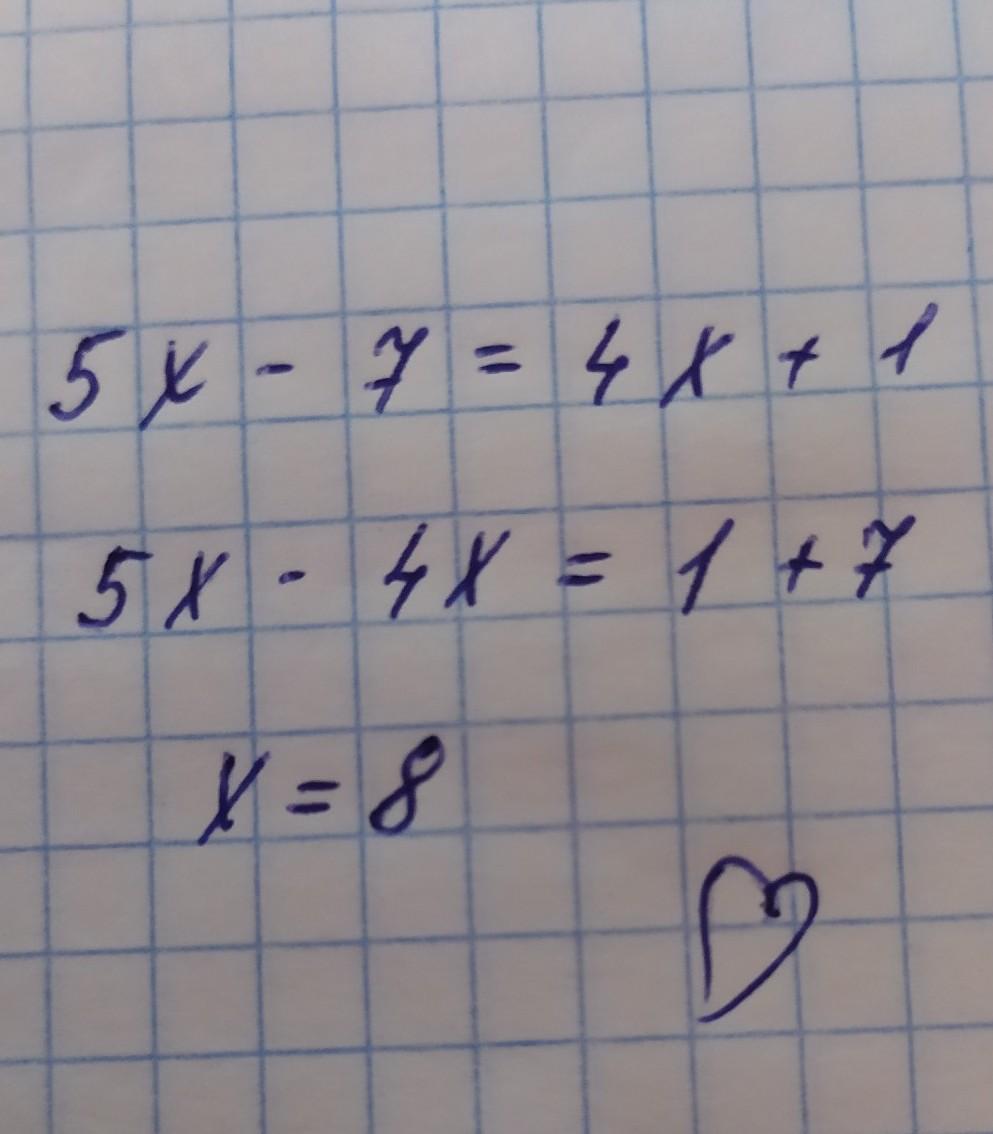 5x - 7 = 4x + 1
5x - 4x = 1 + 7
x = 8